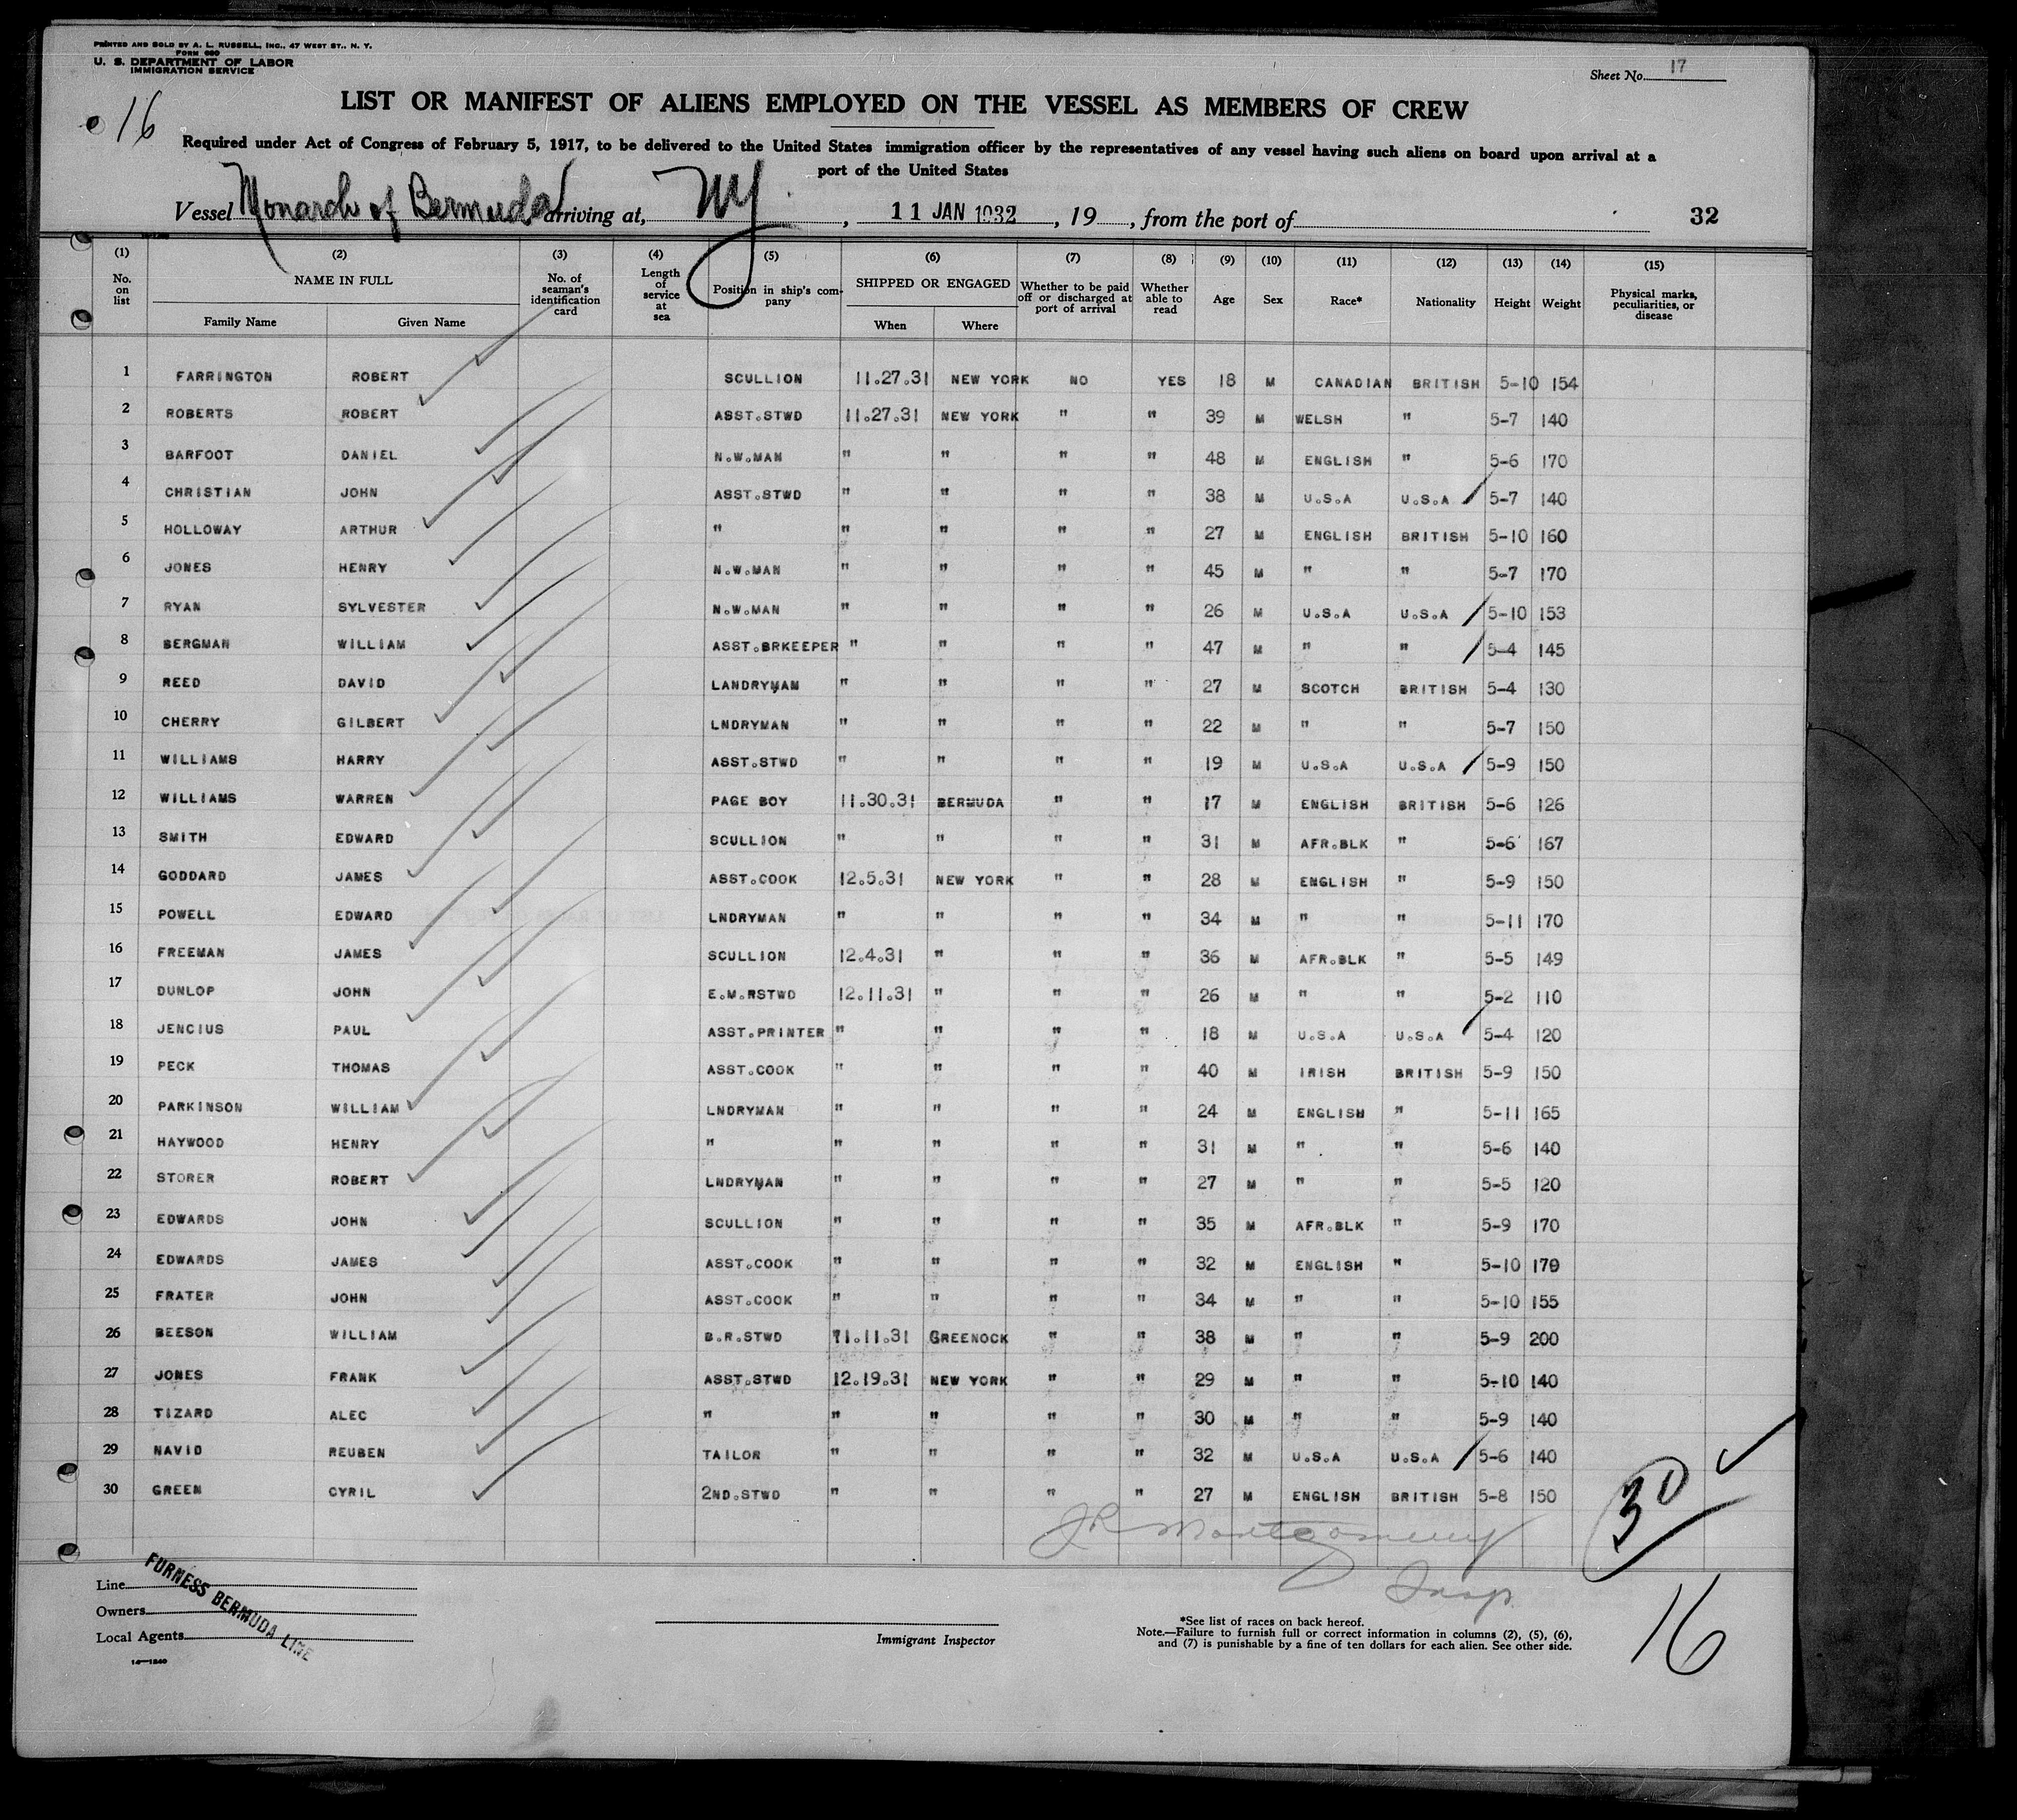 PRINTED AND SOLD BY A. L. RUSSELL, INC., 47 WEST ST., N. Y.
FORM 680
U. S. DEPARTMENT OF LABOR
IMMIGRATION SERVICE
Sheet No. 17
16
LIST OR MANIFEST OF ALIENS EMPLOYED ON THE VESSEL AS MEMBERS OF CREW
Required under Act of Congress of February 5, 1917, to be delivered to the United States immigration officer by the representatives of any vessel having such aliens on board upon arrival at a
port of the United States
Vessel Monarch of Bermuda arriving at, NY, 11 JAN 1932, 19, from the port of 32
(1) (2) (3) (4) (5) (6) (7) (8) (9) (10) (11) (12) (13) (14) (15)
No. on list NAME IN FULL No. of seaman's identification card Length of service at sea Position in ship's company SHIPPED OR ENGAGED Whether to be paid off or discharged at port of arrival Whether able to read Age Sex Race* Nationality Height Weight Physical marks, peculiarities, or disease
Family Name Given Name When Where
1 FARRINGTON ROBERT SCULLION 11.27.31 NEW YORK NO YES 18 M CANADIAN BRITISH 5-10 154
2 ROBERTS ROBERT ASST.STWD 11.27.31 NEW YORK " " 39 M WELSH " 5-7 140
3 BARFOOT DANIEL N.W.MAN " " " " 48 M ENGLISH " 5-6 170
4 CHRISTIAN JOHN ASST.STWD " " " " 38 M U.S.A U.S.A 5-7 140
5 HOLLOWAY ARTHUR " " " " " 27 M ENGLISH BRITISH 5-10 160
6 JONES HENRY N.W.MAN " " " " 45 M " " 5-7 170
7 RYAN SYLVESTER N.W.MAN " " " " 26 M U.S.A U.S.A 5-10 153
8 BERGMAN WILLIAM ASST.BRKEEPER " " " " 47 M " " 5-4 145
9 REED DAVID LANDRYMAN " " " " 27 M SCOTCH BRITISH 5-4 130
10 CHERRY GILBERT LNDRYMAN " " " " 22 M " " 5-7 150
11 WILLIAMS HARRY ASST.STWD " " " " 19 M U.S.A U.S.A 5-9 150
12 WILLIAMS WARREN PAGE BOY 11.30.31 BERMUDA " " 17 M ENGLISH BRITISH 5-6 126
13 SMITH EDWARD SCULLION " " " " 31 M AFR.BLK " 5-6 167
14 GODDARD JAMES ASST.COOK 12.5.31 NEW YORK " " 28 M ENGLISH " 5-9 150
15 POWELL EDWARD LNDRYMAN " " " " 34 M " " 5-11 170
16 FREEMAN JAMES SCULLION 12.4.31 " " " 36 M AFR.BLK " 5-5 149
17 DUNLOP JOHN E.M.RSTWD 12.11.31 " " " 26 M " " 5-2 110
18 JENCIUS PAUL ASST.PRINTER " " " " 18 M U.S.A U.S.A 5-4 120
19 PECK THOMAS ASST.COOK " " " " 40 M IRISH BRITISH 5-9 150
20 PARKINSON WILLIAM LNDRYMAN " " " " 24 M ENGLISH " 5-11 165
21 HAYWOOD HENRY " " " " " 31 M " " 5-6 140
22 STORER ROBERT LNDRYMAN " " " " 27 M " " 5-5 120
23 EDWARDS JOHN SCULLION " " " " 35 M AFR.BLK " 5-9 170
24 EDWARDS JAMES ASST.COOK " " " " 32 M ENGLISH " 5-10 170
25 FRATER JOHN ASST.COOK " " " " 34 M " " 5-10 155
26 BEESON WILLIAM B.R.STWD 11.11.31 GREENOCK " " 38 M " " 5-9 200
27 JONES FRANK ASST.STWD 12.19.31 NEW YORK " " 29 M " " 5-10 140
28 TIZARD ALEC " " " " " 30 M " " 5-9 140
29 NAVID REUBEN TAILOR " " " " 32 M U.S.A U.S.A 5-6 140
30 GREEN CYRIL 2ND.STWD " " " " 27 M ENGLISH BRITISH 5-8 150
JR Montgomery
Insp.
30
16
Line
Owners
Local Agents
FURNESS BERMUDA LINE
14—1240
Immigrant Inspector
*See list of races on back hereof.
Note.—Failure to furnish full or correct information in columns (2), (5), (6),
and (7) is punishable by a fine of ten dollars for each alien. See other side.